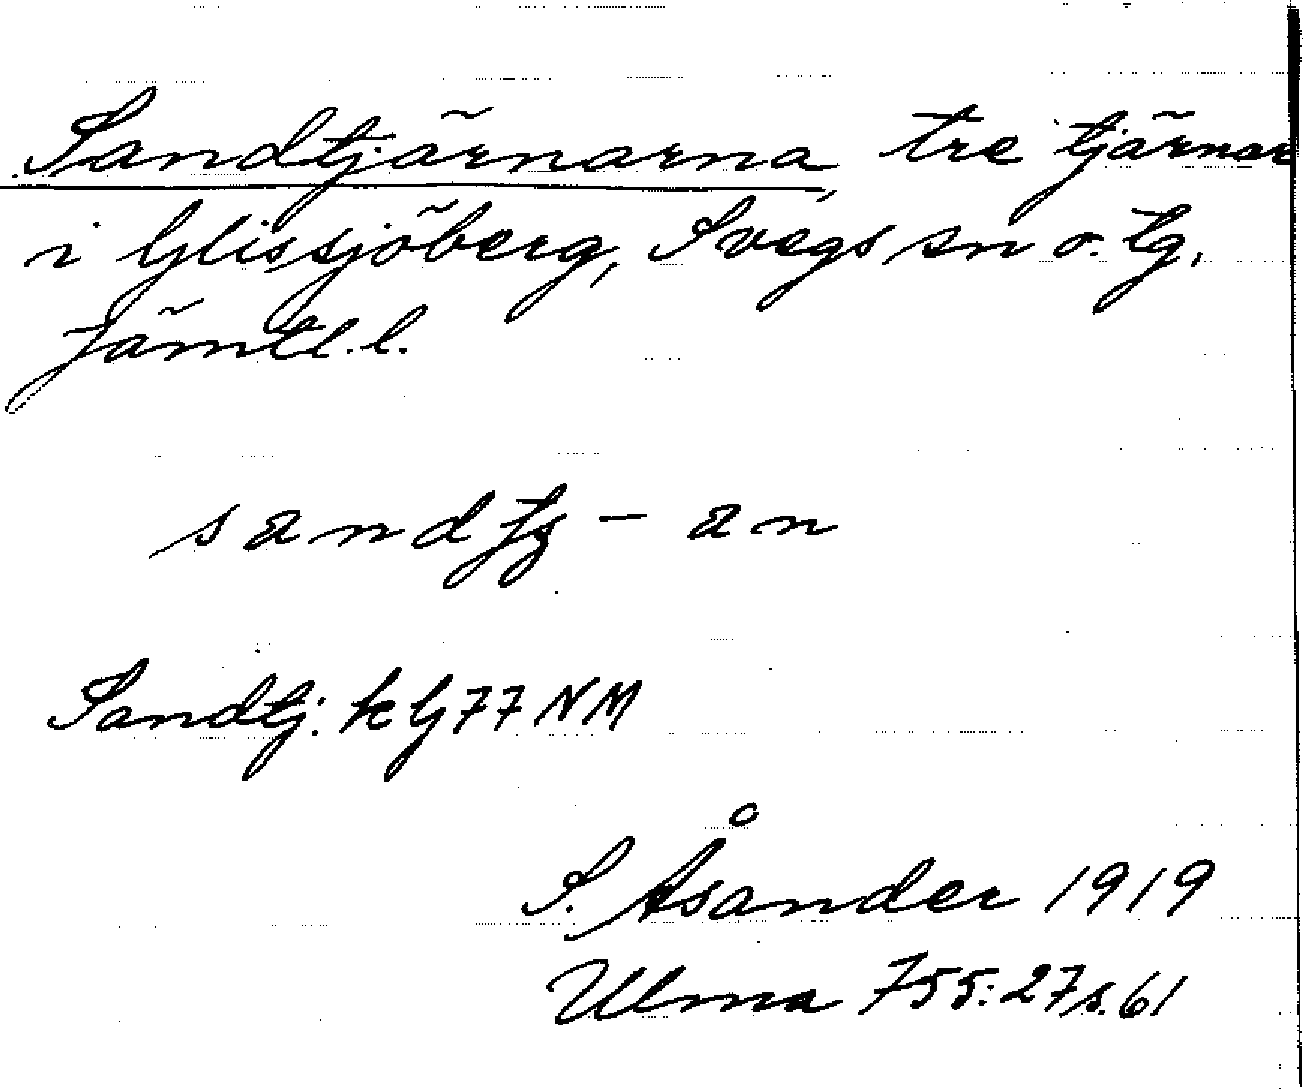 Sandtjärnarna, tre tjärnar
i Glissjöberg, Svegs sn o. tg,
Jämtl. l.
sand – an
Sandtj. k lj 77 NM
S. Åsander 1919
Ulma 755:27 s. 61